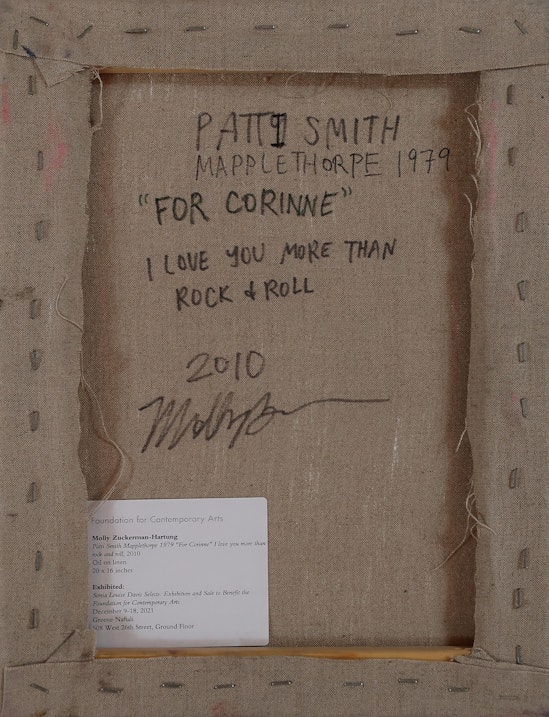 PATTI SMITH
MAPPLETHORPE 1979
"FOR CORINNE"
I LOVE YOU MORE THAN
ROCK & ROLL
2010
Foundation for Contemporary Arts
Molly Zuckerman-Hartung
Patti Smith Mapplethorpe 1979 "For Corinne" I love you more than
rock and roll, 2010
Oil on linen
20 x 16 inches
Exhibited:
Sonia Louise Davis Selects: Exhibition and Sale to Benefit the
Foundation for Contemporary Arts
December 9-18, 2021
Greene Naftali
508 West 26th Street, Ground Floor